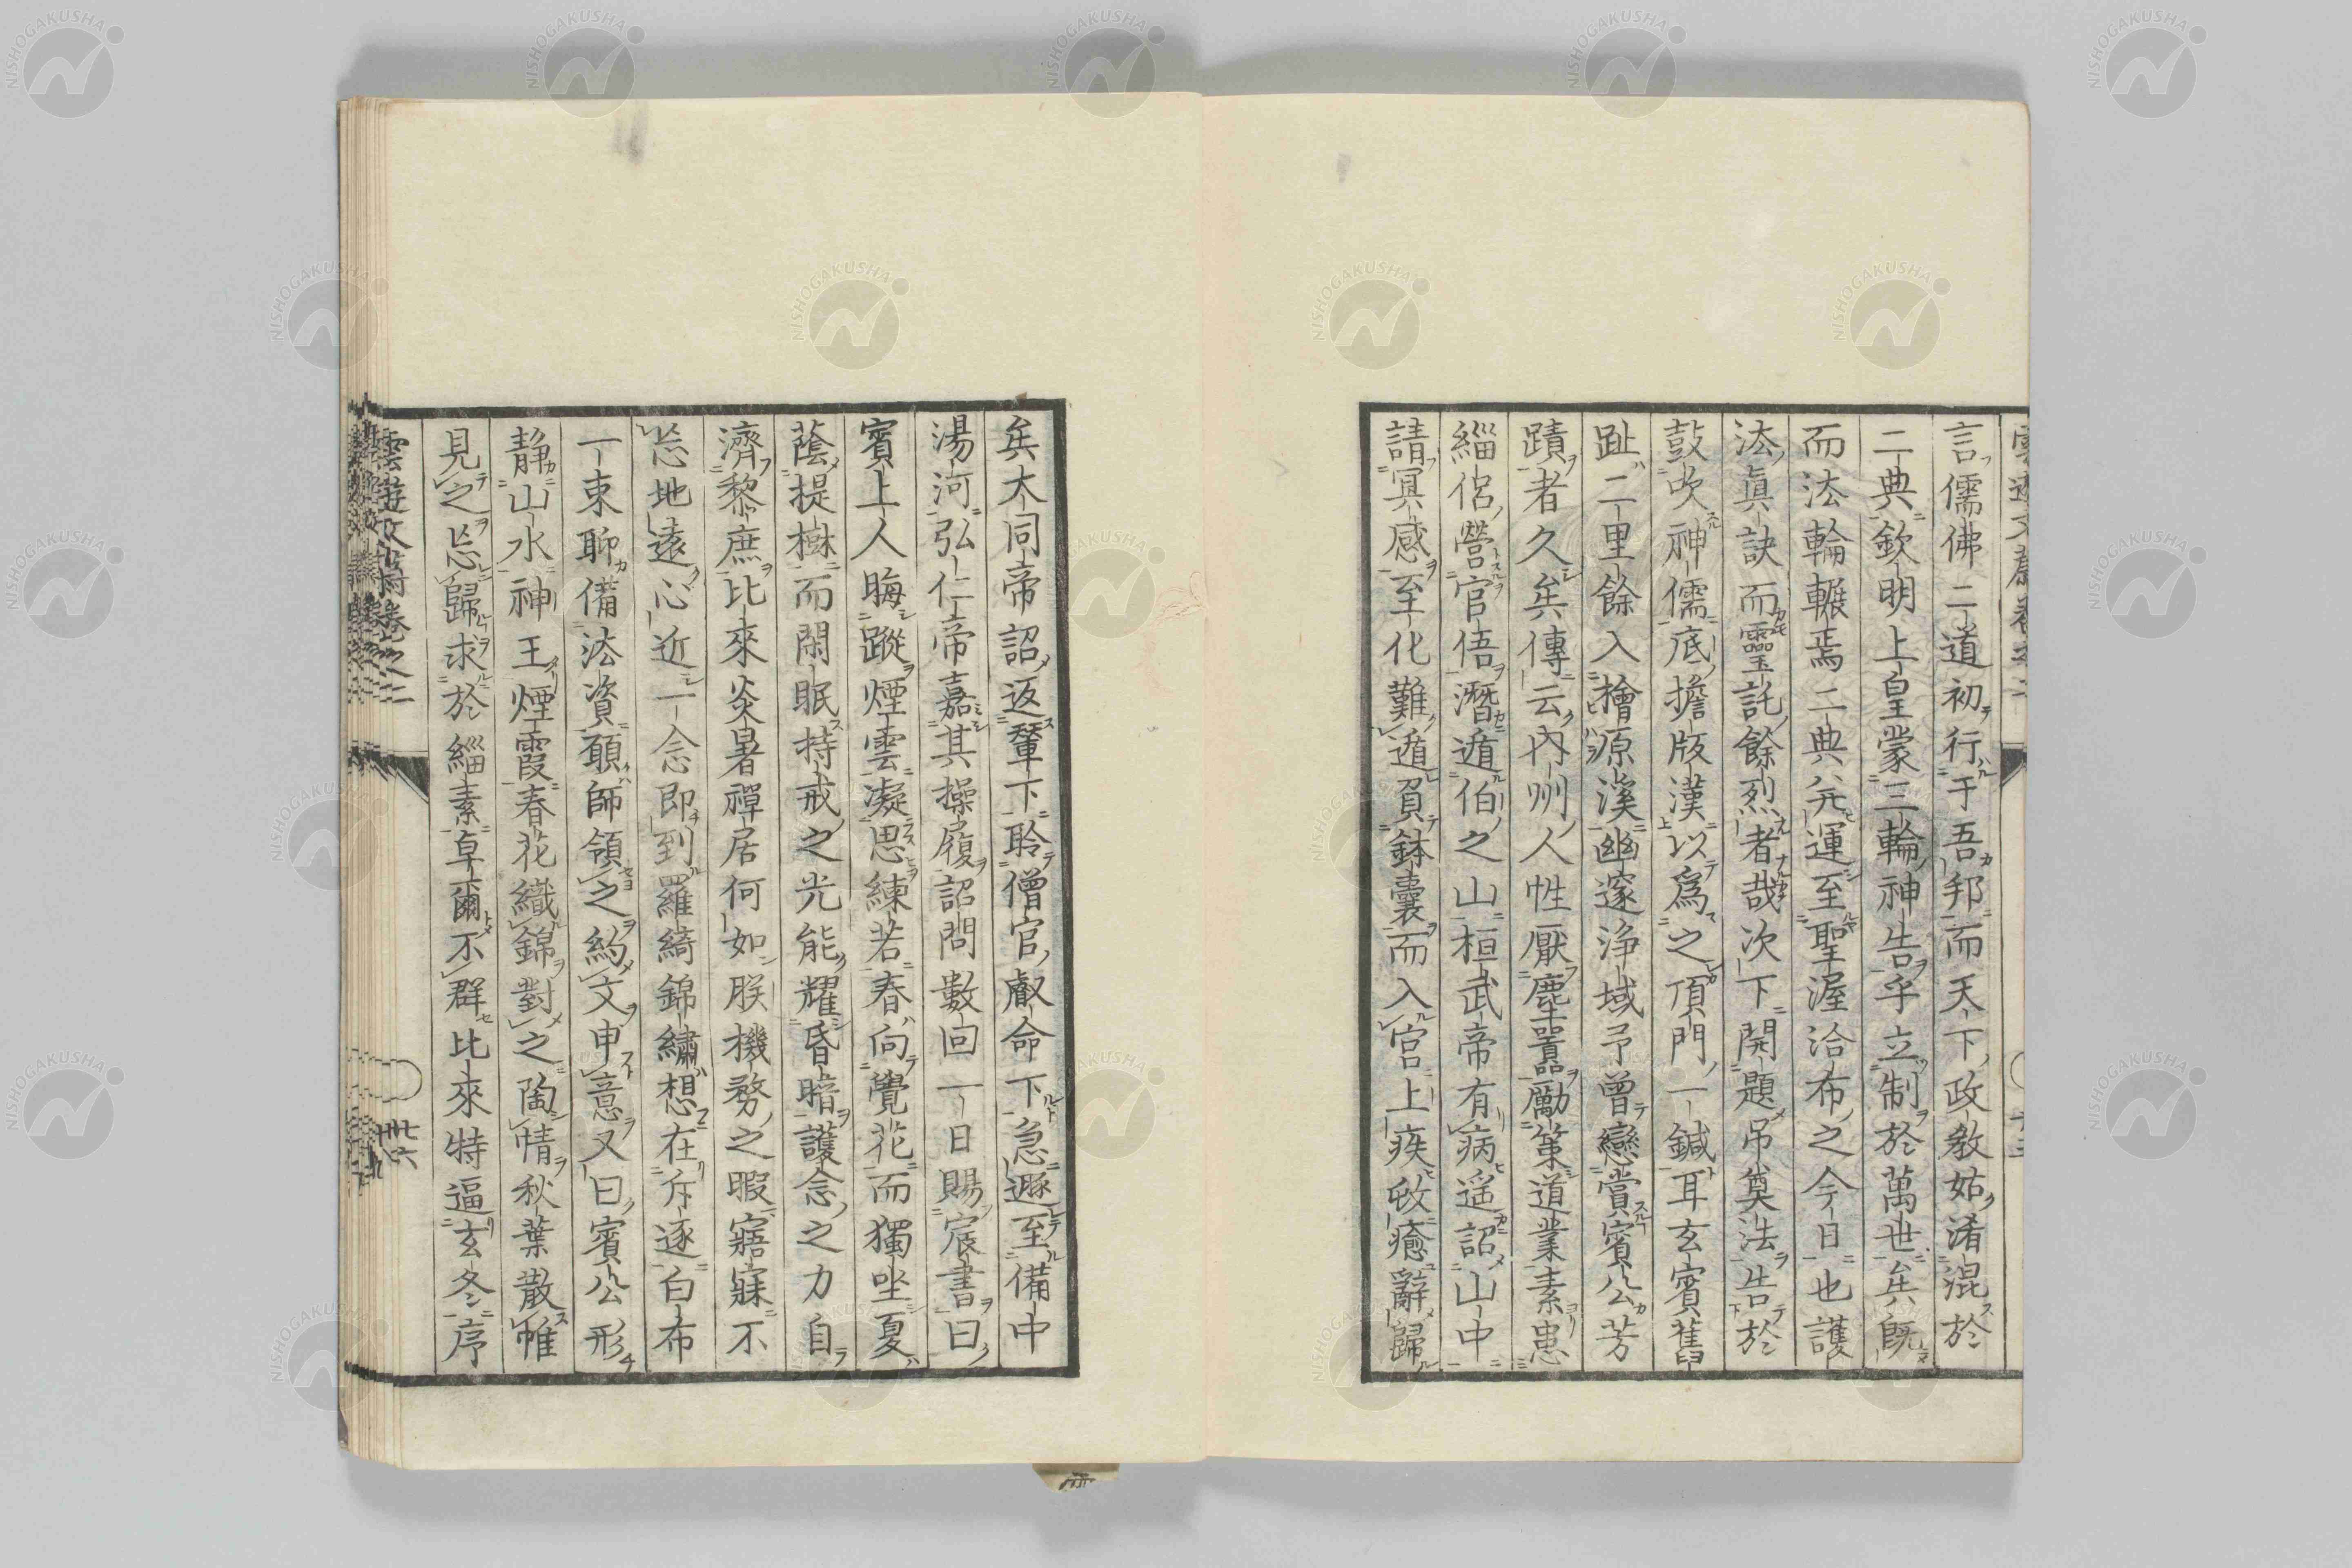 言儒佛二道初行于吾邦而天下政教姑淆混於
二典欽明上皇蒙三輪神告乎立制於萬世矣既
而法輪輾焉二典並運至聖渥洽布之今日也護
法眞訣而靈託餘烈者哉次下開題吊奠法告於
鼓吹神儒底擔版漢以爲之頂門一鍼耳玄賓舊
趾二里餘入檜源溪幽邃浄域予曾戀賞賓公芳
蹟者久矣傳云內州人性厭塵囂勵策道業素患
緇侶營官偣潛遁伯之山桓武帝有病遥詔山中
請冥感至化難遁負鉢囊而入宮上疾攸癒辭歸
矣大同帝詔返輦下聆僧官獻命下急遯至備中
湯河弘仁帝嘉其操履詔問數回一日賜宸書曰
賓上人晦蹤煙雲凝思練若春向覺花而獨坐夏
蔭提樹而閑眠持戒之光能耀昏暗護念之力自
濟黎庶比來炎暑禪居何如朕機務之暇寤寐不
忘地遠心近一念即到羅綺錦繡想在斥逐白布
一束聊備法資願師領之約文申意又曰賓公形
静山水神王煙霞春花織錦對之陶情秋葉散帷
見之忘歸求於緇素卓爾不群比來特逼玄冬序
雲遊文蔚卷之二
NISHOGAKUSHA